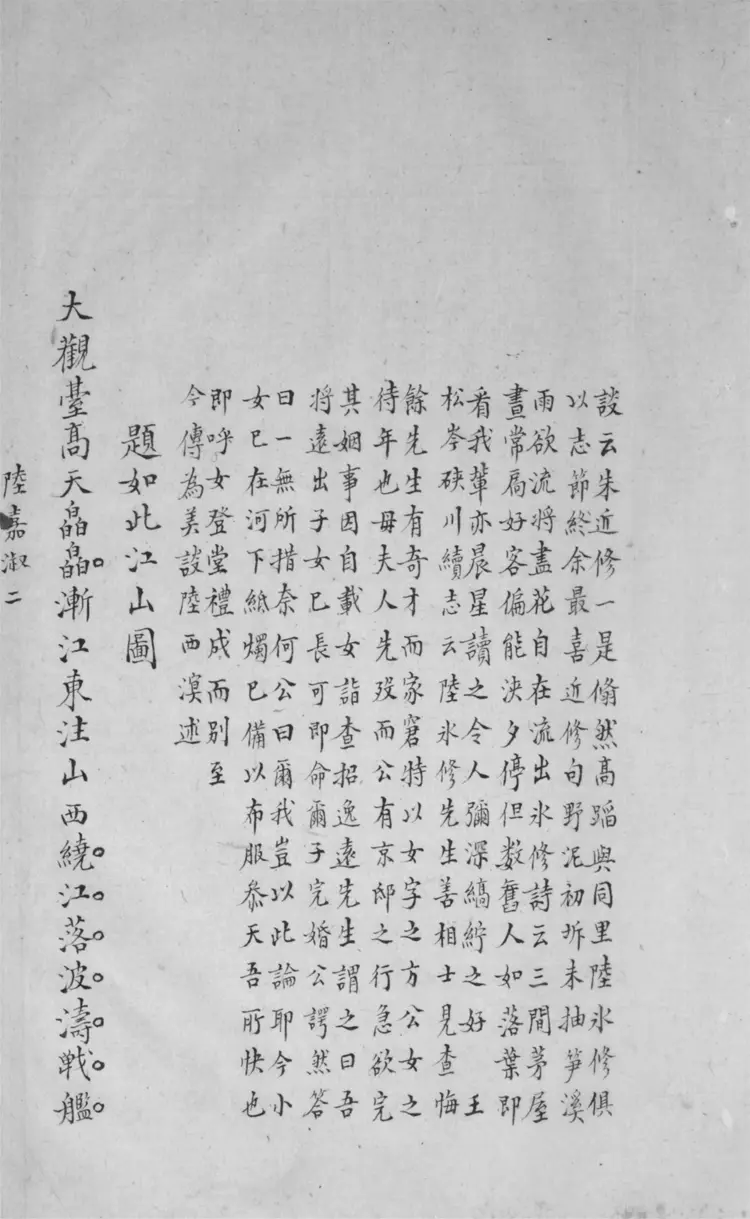 談云朱近修一是翛然高蹈與同里陸氷修俱
以志節終余最喜近修句野泥初坼未抽笋溪
雨欲流將盡花自在流出氷修詩云三間茅屋
晝常扃好客偏能泱夕停但数舊人如落葉即
看我輩亦晨星讀之令人彌深縞紵之好 王
松岑硤川續志云陸氷修先生善相士見查悔
餘先生有奇才而家窘特以女字之方公女之
待年也毋夫人先歿而公有京邸之行急欲完
其姻事因自載女詣查招逸遠先生謂之曰吾
將遠出子女已長可即命爾子完婚公諤然答
曰一無所措奈何公曰爾我豈以此論耶今小
女已在河下紙燭已備以布服叅天吾所快也
即呼女登堂禮成而別至
今傳為美談陸西溟述
題如此江山圖
大觀臺高天皛皛。漸江東注山西繞。江。落。波。濤。戰。艦。
陸嘉淑二